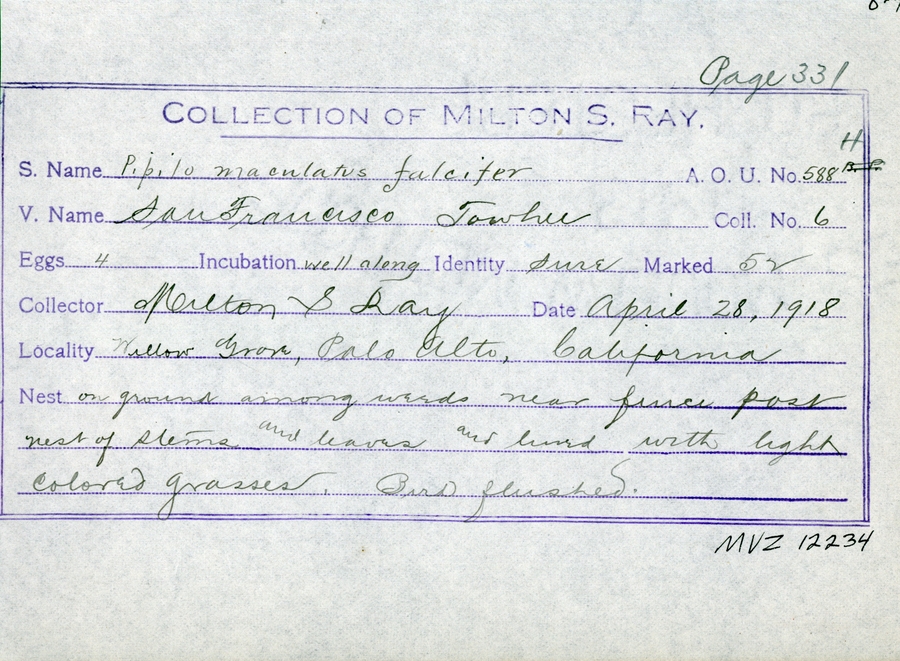 Page 331
COLLECTION OF MILTON S. RAY.
S. Name Pipilo maculatus falcifer A. O. U. No. 588 H
V. Name San Francisco Towhee Coll. No. 6
Eggs 4 Incubation well along Identity sure Marked 52
Collector Milton S Ray Date April 28, 1918
Locality Willow Grove, Palo Alto, California
Nest on ground among weeds near fence post
nest of stems and leaves and lined with light
colored grasses. Bird flushed.
MVZ 12234